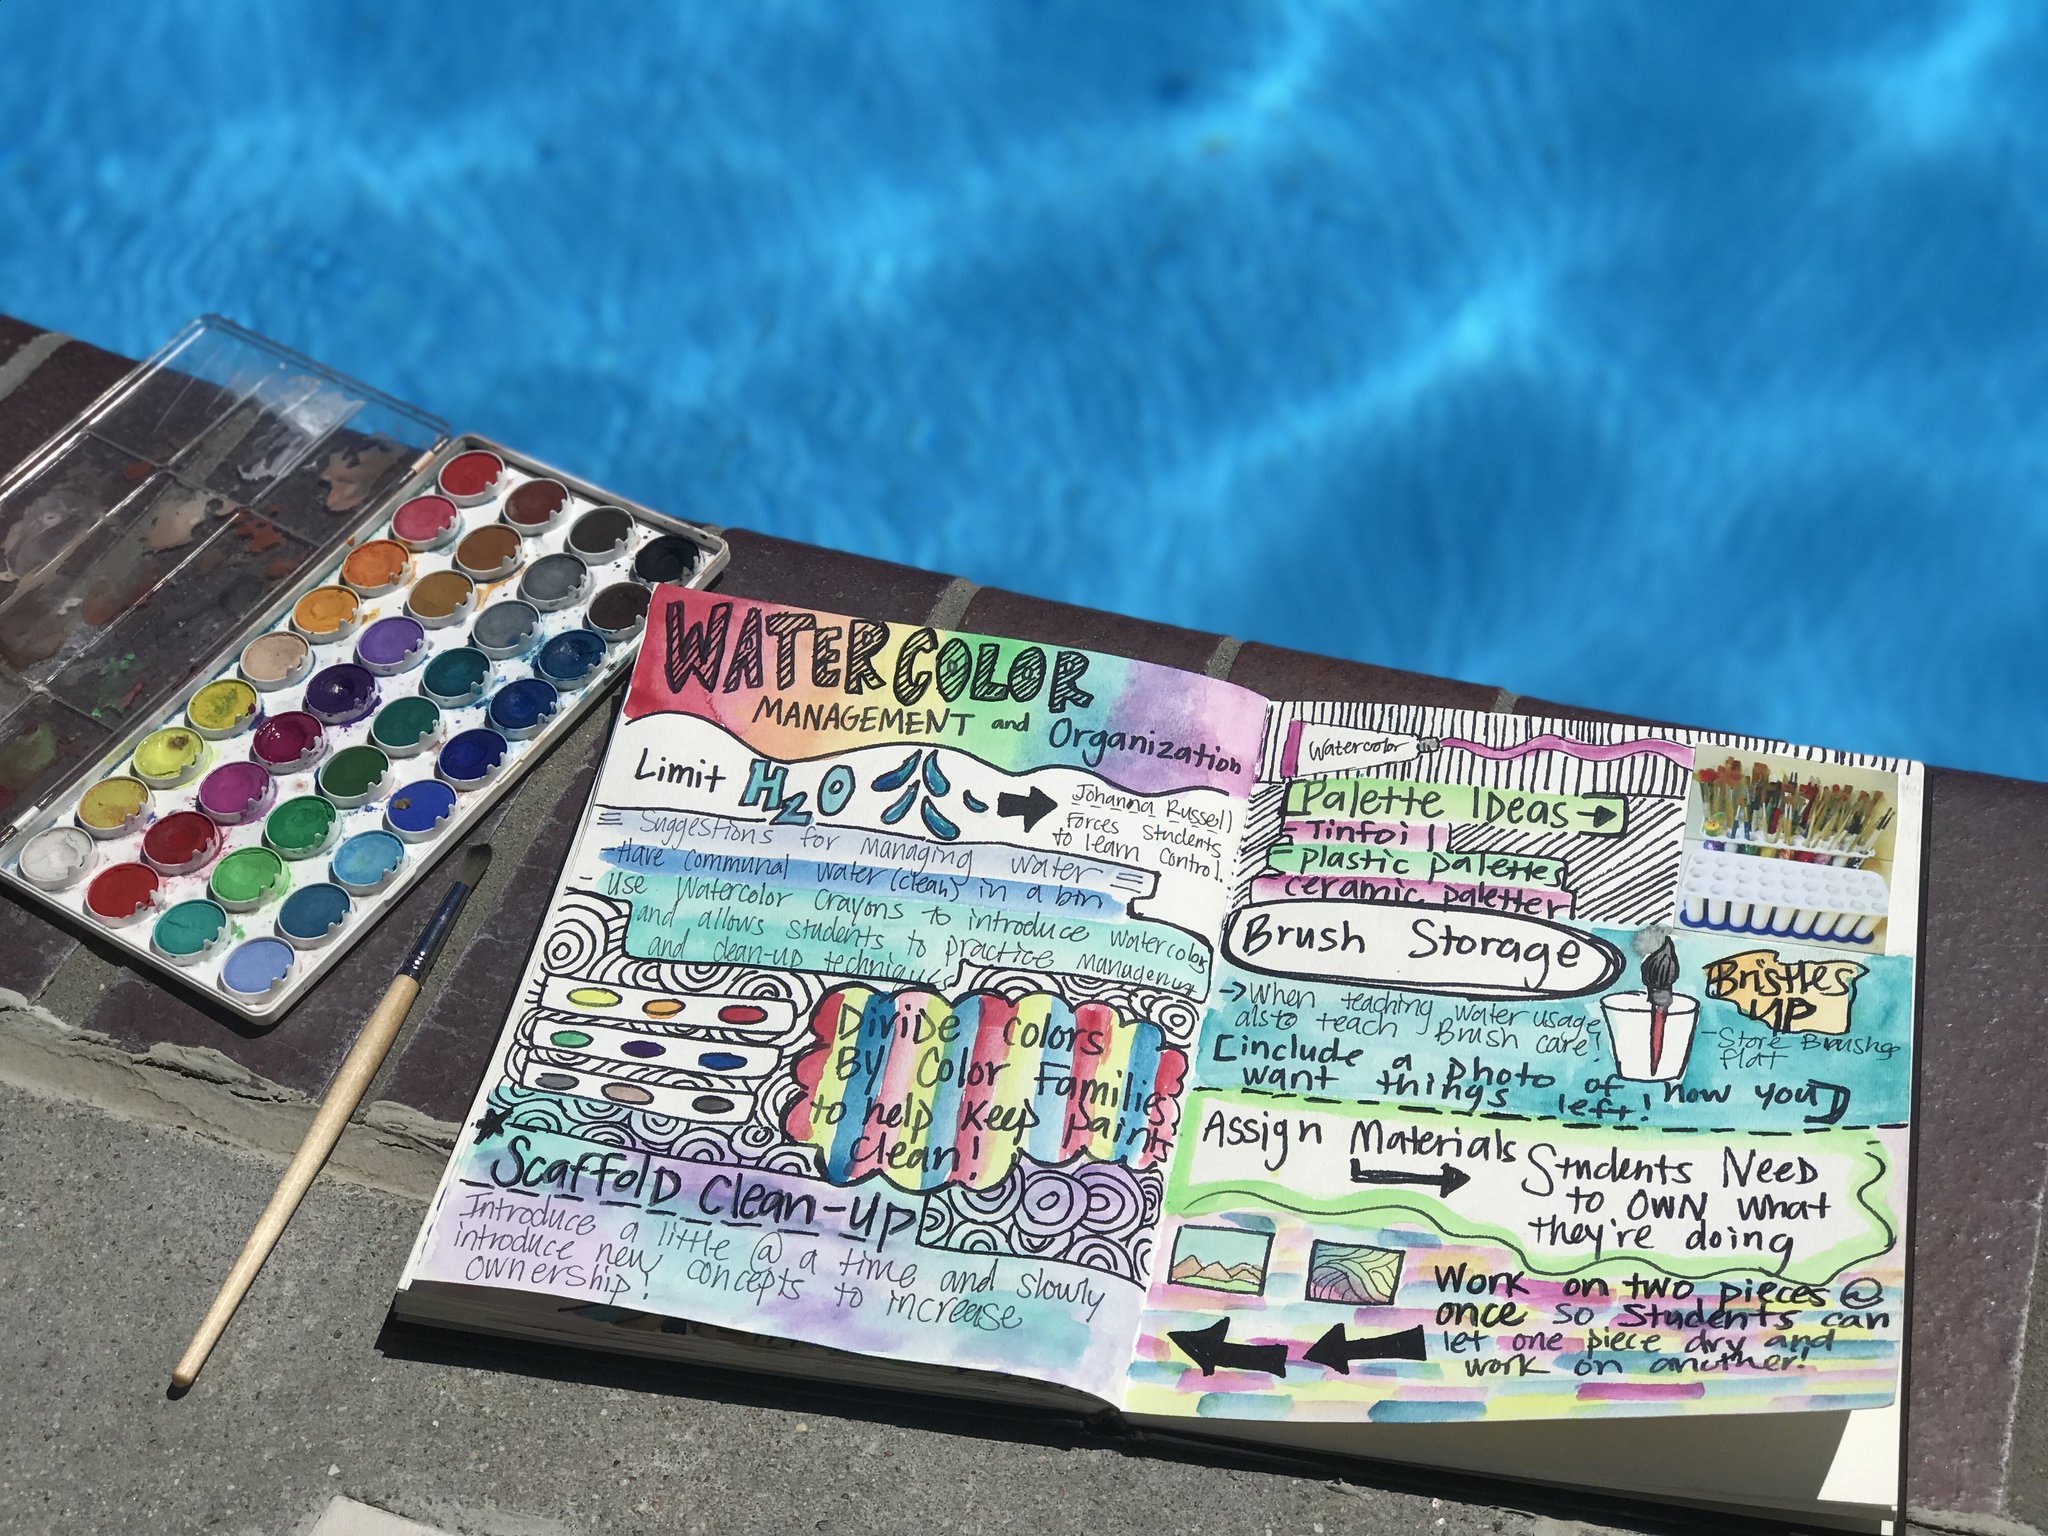 WATERCOLOR
MANAGEMENT and Organization
Limit H2O
Johanna Russell
Forces Students
to learn control.
= Suggestions for managing water =
-Have communal water (clean) in a bin
- Use Watercolor Crayons to introduce watercolor
and allows students to practice management
and clean-up techniques
Divide colors
By Color Families
to help keep paints
clean!
Scaffold Clean-up
Introduce a little @ a time and slowly
introduce new concepts to increase
ownership!
Watercolor
Palette Ideas
- Tinfoil
- plastic palettes
- ceramic palettes
Brush Storage
Bristles
UP
- Store Brushes
flat
When teaching water usage
also teach Brush care!
[include a photo of how you
want things left!]
Assign Materials
Students Need
to own what
they're doing
Work on two pieces @
once so students can
let one piece dry and
work on another!